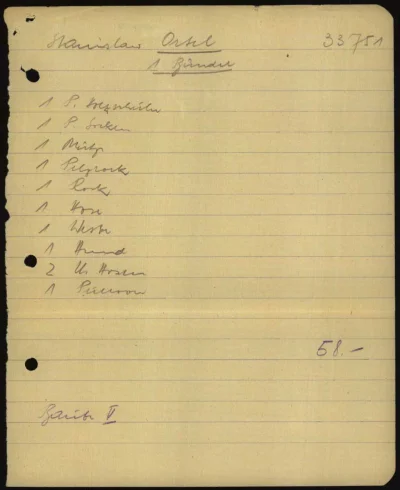 Stanislaw Orbel 33751
1 Bündel
1 P. Holzschuhe
1 P. Socken
1 Mütze
1 Pelzrock
1 Rock
1 Hose
1 Weste
1 Hemd
2 U. Hosen
1 Pullover
58.—
V